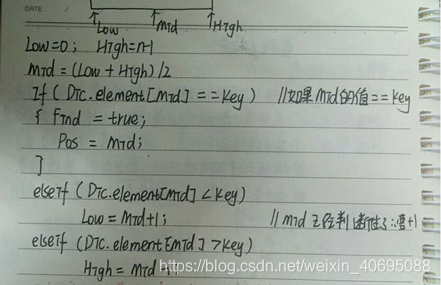 DATE
Low Mid High
Low=0; High=n-1
Mid=(Low+High)/2
If (Dic.element[Mid]==Key) //如果Mid的值==Key
{ Find = true;
Pos = Mid;
}
elseIf (Dic.element[Mid]<Key)
Low=Mid+1; //Mid已经判断过了∴要+1
elseIf (Dic.element[Mid]>Key)
High = Mid
https://blog.csdn.net/weixin_40695088